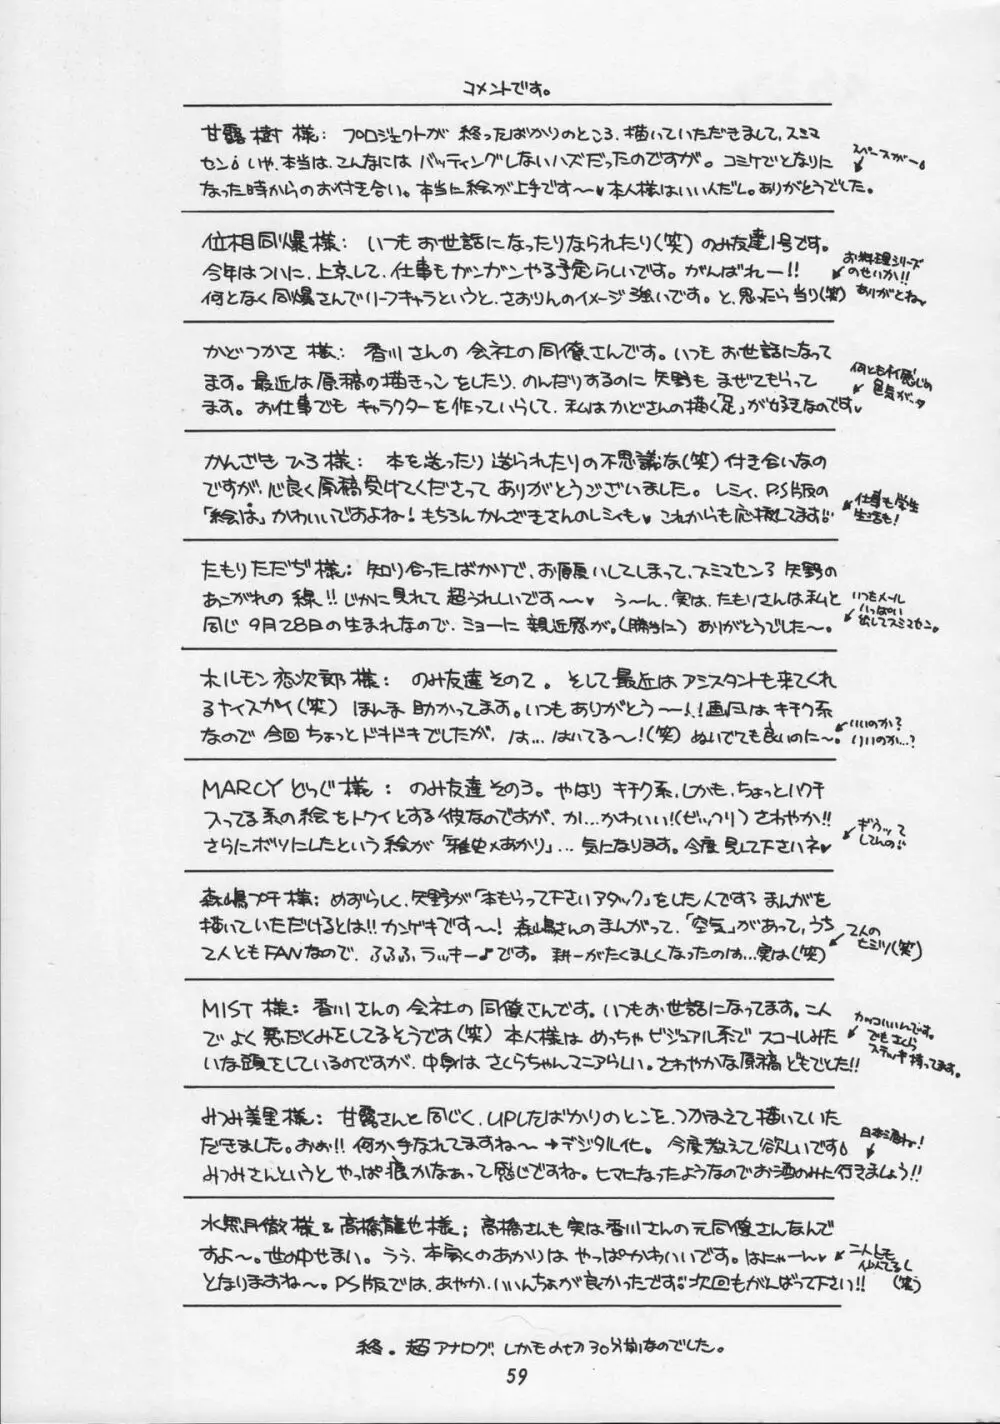 コメントです。
甘露樹様: プロジェクトが終ったばかりのところ、描いていただきまして、スミマ
セン。いや、本当は、こんなにはバッティングしないハズだったのですが。コミケでとなりに
なった時からのお付き合い。本当に絵が上手です〜♥本人様はいい人だし。ありがとうでした。
スペースがー。
位相同爆様: いつもお世話になったりなられたり(笑)のみ友達1号です。
今年はついに、上京して、仕事もガンガンやる予定らしいです。がんばれー!!
何となく同爆さんでリーフキャラというと、さおりんのイメージ強いです。と、思ったら当り(笑)
お料理シリーズ
のせいか!!
ありがとね♥
かどつかさ様: 香川さんの会社の同僚さんです。いつもお世話になって
ます。最近は原稿の描きっこをしたり、のんだりするのに矢野もまぜてもらって
ます。お仕事でもキャラクターを作っていらして、私はかどさんの描く「足」が好きなのです♥
何とも
色気が
かんざきひろ様: 本を送ったり送られたりの不思議な(笑)付き合いなの
ですが、心良く原稿受けてくださってありがとうございました。レミィ、P.S版の
「絵は」かわいいですよね!もちろんかんざきさんのレミィも♥これからも応援してます!!
仕事も学生
生活も!
たもりただぢ様: 知り合ったばかりで、お願いしてしまって、スミマセン 矢野の
あこがれの線!!じかに見れて超うれしいです〜〜♥う〜ん、実は、たもりさんは私と
同じ9月28日の生まれなので、ミョーに親近感が。(勝手に)ありがとうでした〜。
いつもメール
いっぱい
出してスミマセン。
ホルモン恋次郎様: のみ友達その2。そして最近はアシスタントも来てくれ
るナイスガイ(笑)ほんま助かってます。いつもありがとう〜!画風はキチク系
なので今回ちょっとドキドキでしたが、は…はいてる〜!(笑)ぬいでても良いのに〜。
いいのか?
いいのか…?
MARCYどっぐ様: のみ友達その3。やはりキチク系、しかも、ちょっとハクチ
入ってる系の絵をトクイとする彼なのですが、か…かわいい!(ビックリ)さわやか!!
さらにボツにしたという絵が「雅史×あかり」…気になります。今度見して下さいネ♥
ギうッて
してんの!!
森嶋プチ様: めずらしく、矢野が「本もらって下さいアタック」をした人です まんがを
描いていただけるとは!!カンゲキです〜!森嶋さんのまんがって、「空気」があって、うち
2人ともFANなので、ふふふラッキー♪です。耕一がたくましくなったのは…実は(笑)
2人の
ヒミツ(笑)
MIST様: 香川さんの会社の同僚さんです。いつもお世話になってます。二人
でよく悪だくみをしてるそうです(笑)本人様はめっちゃビジュアル系でスコールみた
いな頭をしているのですが、中身はさくらちゃんマニアらしい。さわやかな原稿どもでした!!
カッコいいんです。
でもさくら
ステッキ持ってます。
みつみ美里様: 甘露さんと同じく、UPしたばかりのとこを、つかまえて描いていた
だきました。おぉ!!何か手なれてますね〜→デジタル化。今度教えて欲しいです。
みつみさんというとやっぱ痕かなぁって感じですね。ヒマになったようなのでお酒のみに行きましょう!!
日本酒ね!
水無月徹様&高橋龍也様; 高橋さんも実は香川さんの元同僚さんなんで
すよ〜。世の中せまい。うぅ、本家のあかりはやっぱかわいいです。はにゃーん♥
となりますね〜。PS版では、あやか、いいんちょが良かったです。次回もがんばって下さい!!
二人とも
似てるし
(笑)
終。超アナログ、しかも〆切30分前なのでした。
59